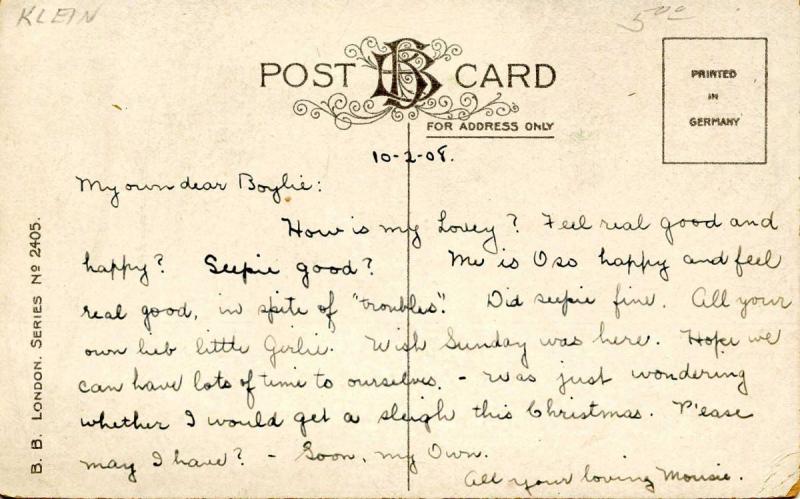 KLEIN
5 00
POST BKB CARD
FOR ADDRESS ONLY
PRINTED
IN
GERMANY
10-2-08.
My own dear Boylie:
How is my Lovey? Feel real good and
happy? Seepie good? Me is Oso happy and feel
real good, in spite of "troubles". Did seepie fine. All your
own lieb little Girlie. Wish Sunday was here. Hope we
can have lots of time to ourselves. - Was just wondering
whether I would get a sleigh this Christmas. P'ease
may I have? - Soon, my Own.
All your loving Mousie.
B. B. LONDON. SERIES No 2405.